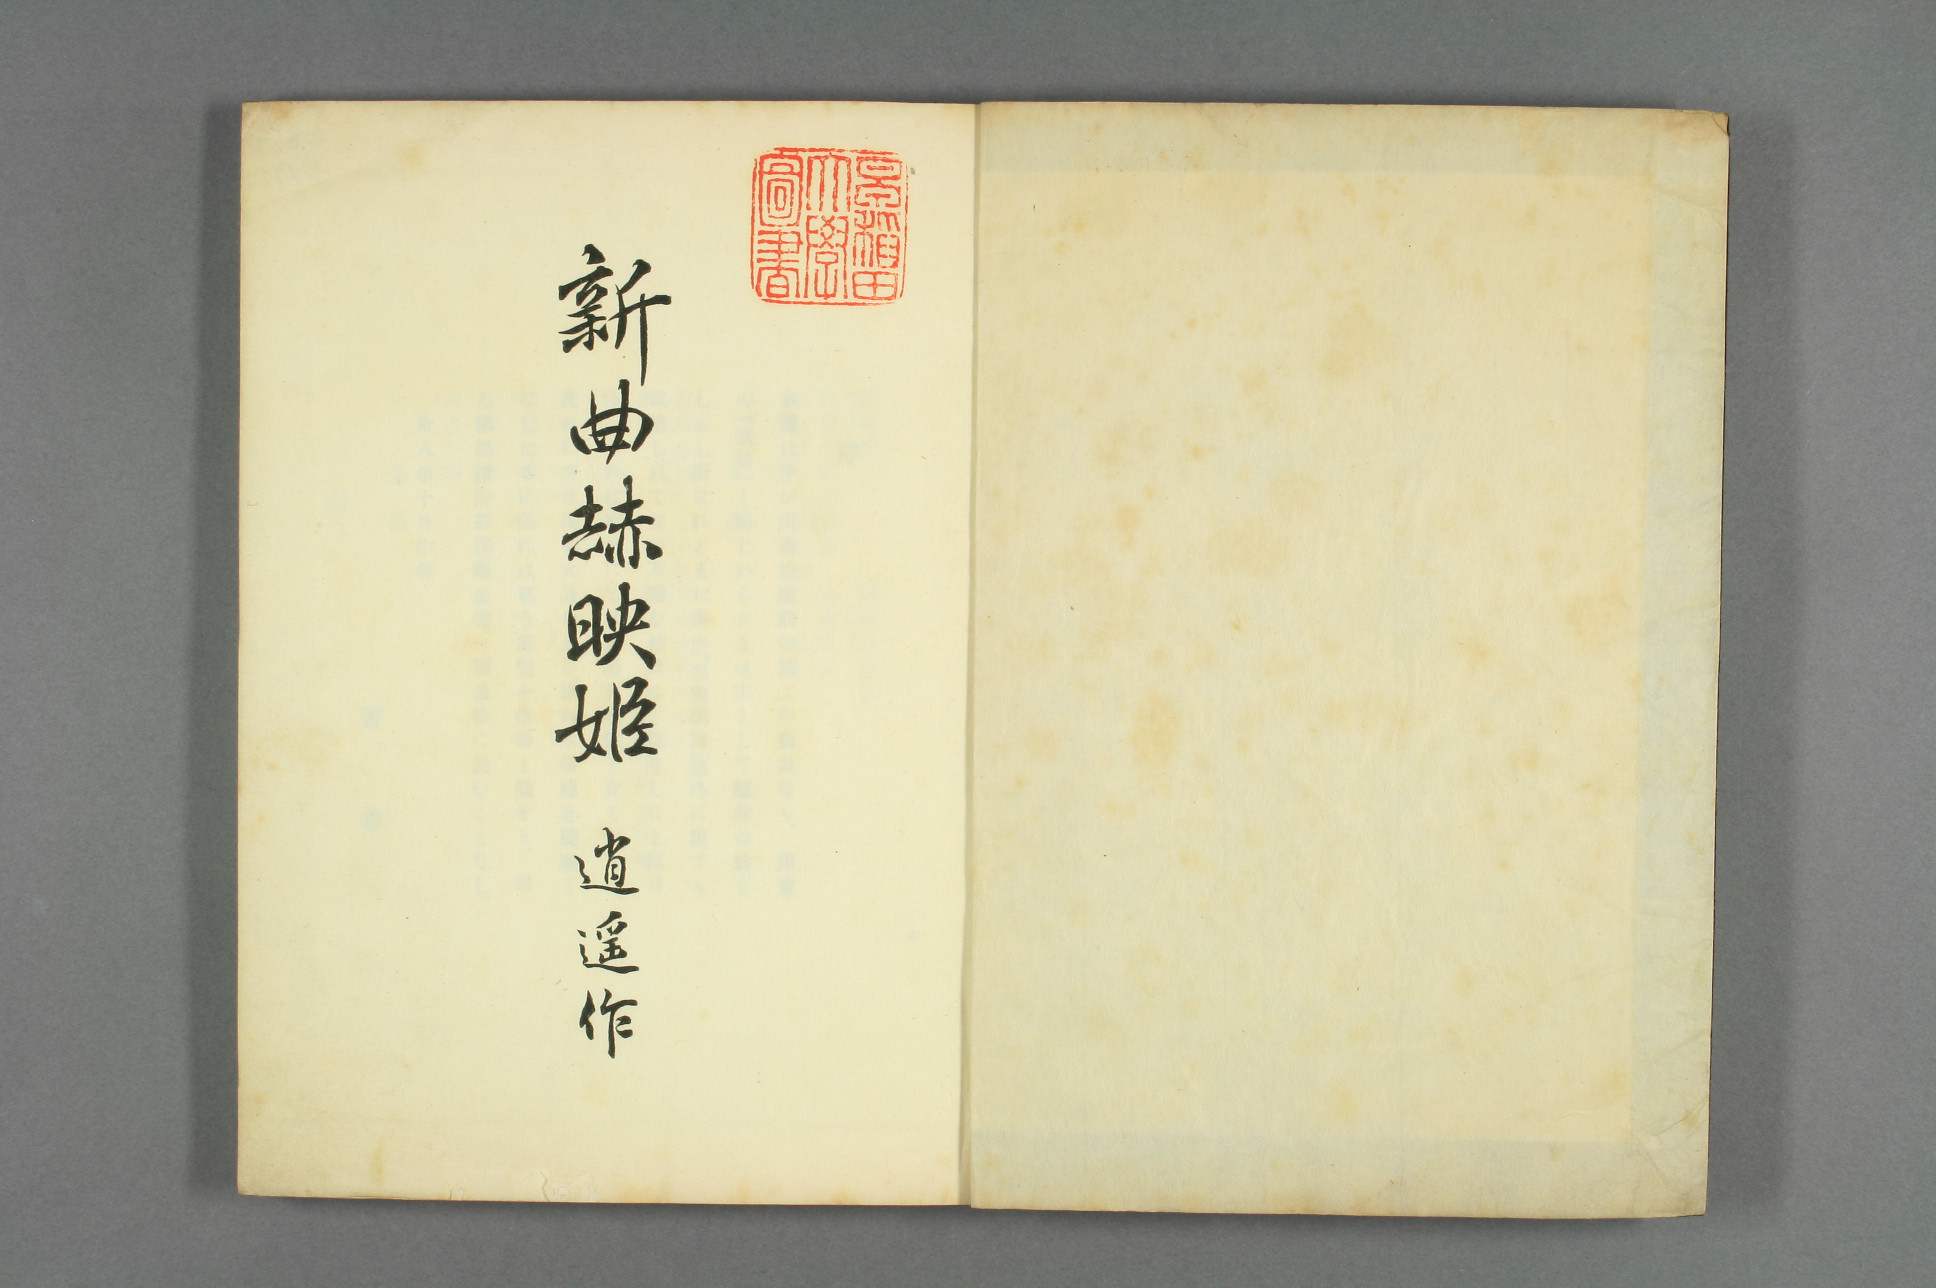 早稲田
大學
圖書
新曲赫映姫 逍遥作